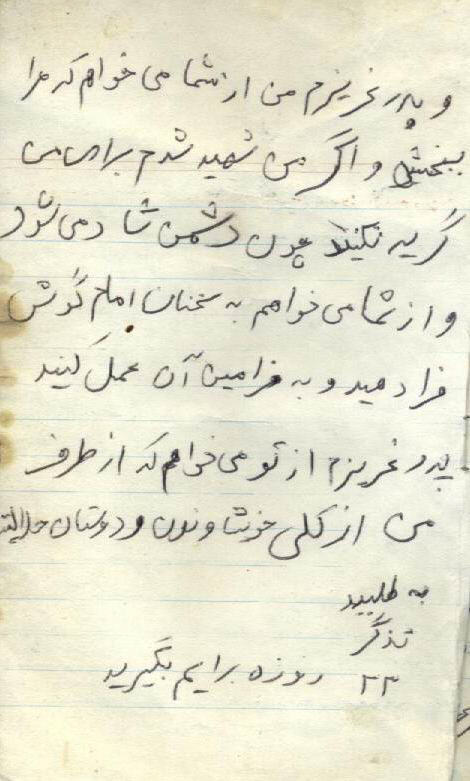 و پدر عزیزم من از شما می خواهم که مرا
ببخشی و اگر من شهید شدم برای من
گریه نکنید چون دشمن شاد می شود
و از شما می خواهم به سخنان امام گوش
فرا دهید و به فرامین آن عمل کنید
پدر عزیزم از تو می خواهم که از طرف
من از کلی خوشاوندن و دوستان حلالیت
به طلبید
تذکر
۲۳ روزه برایم بگیرید